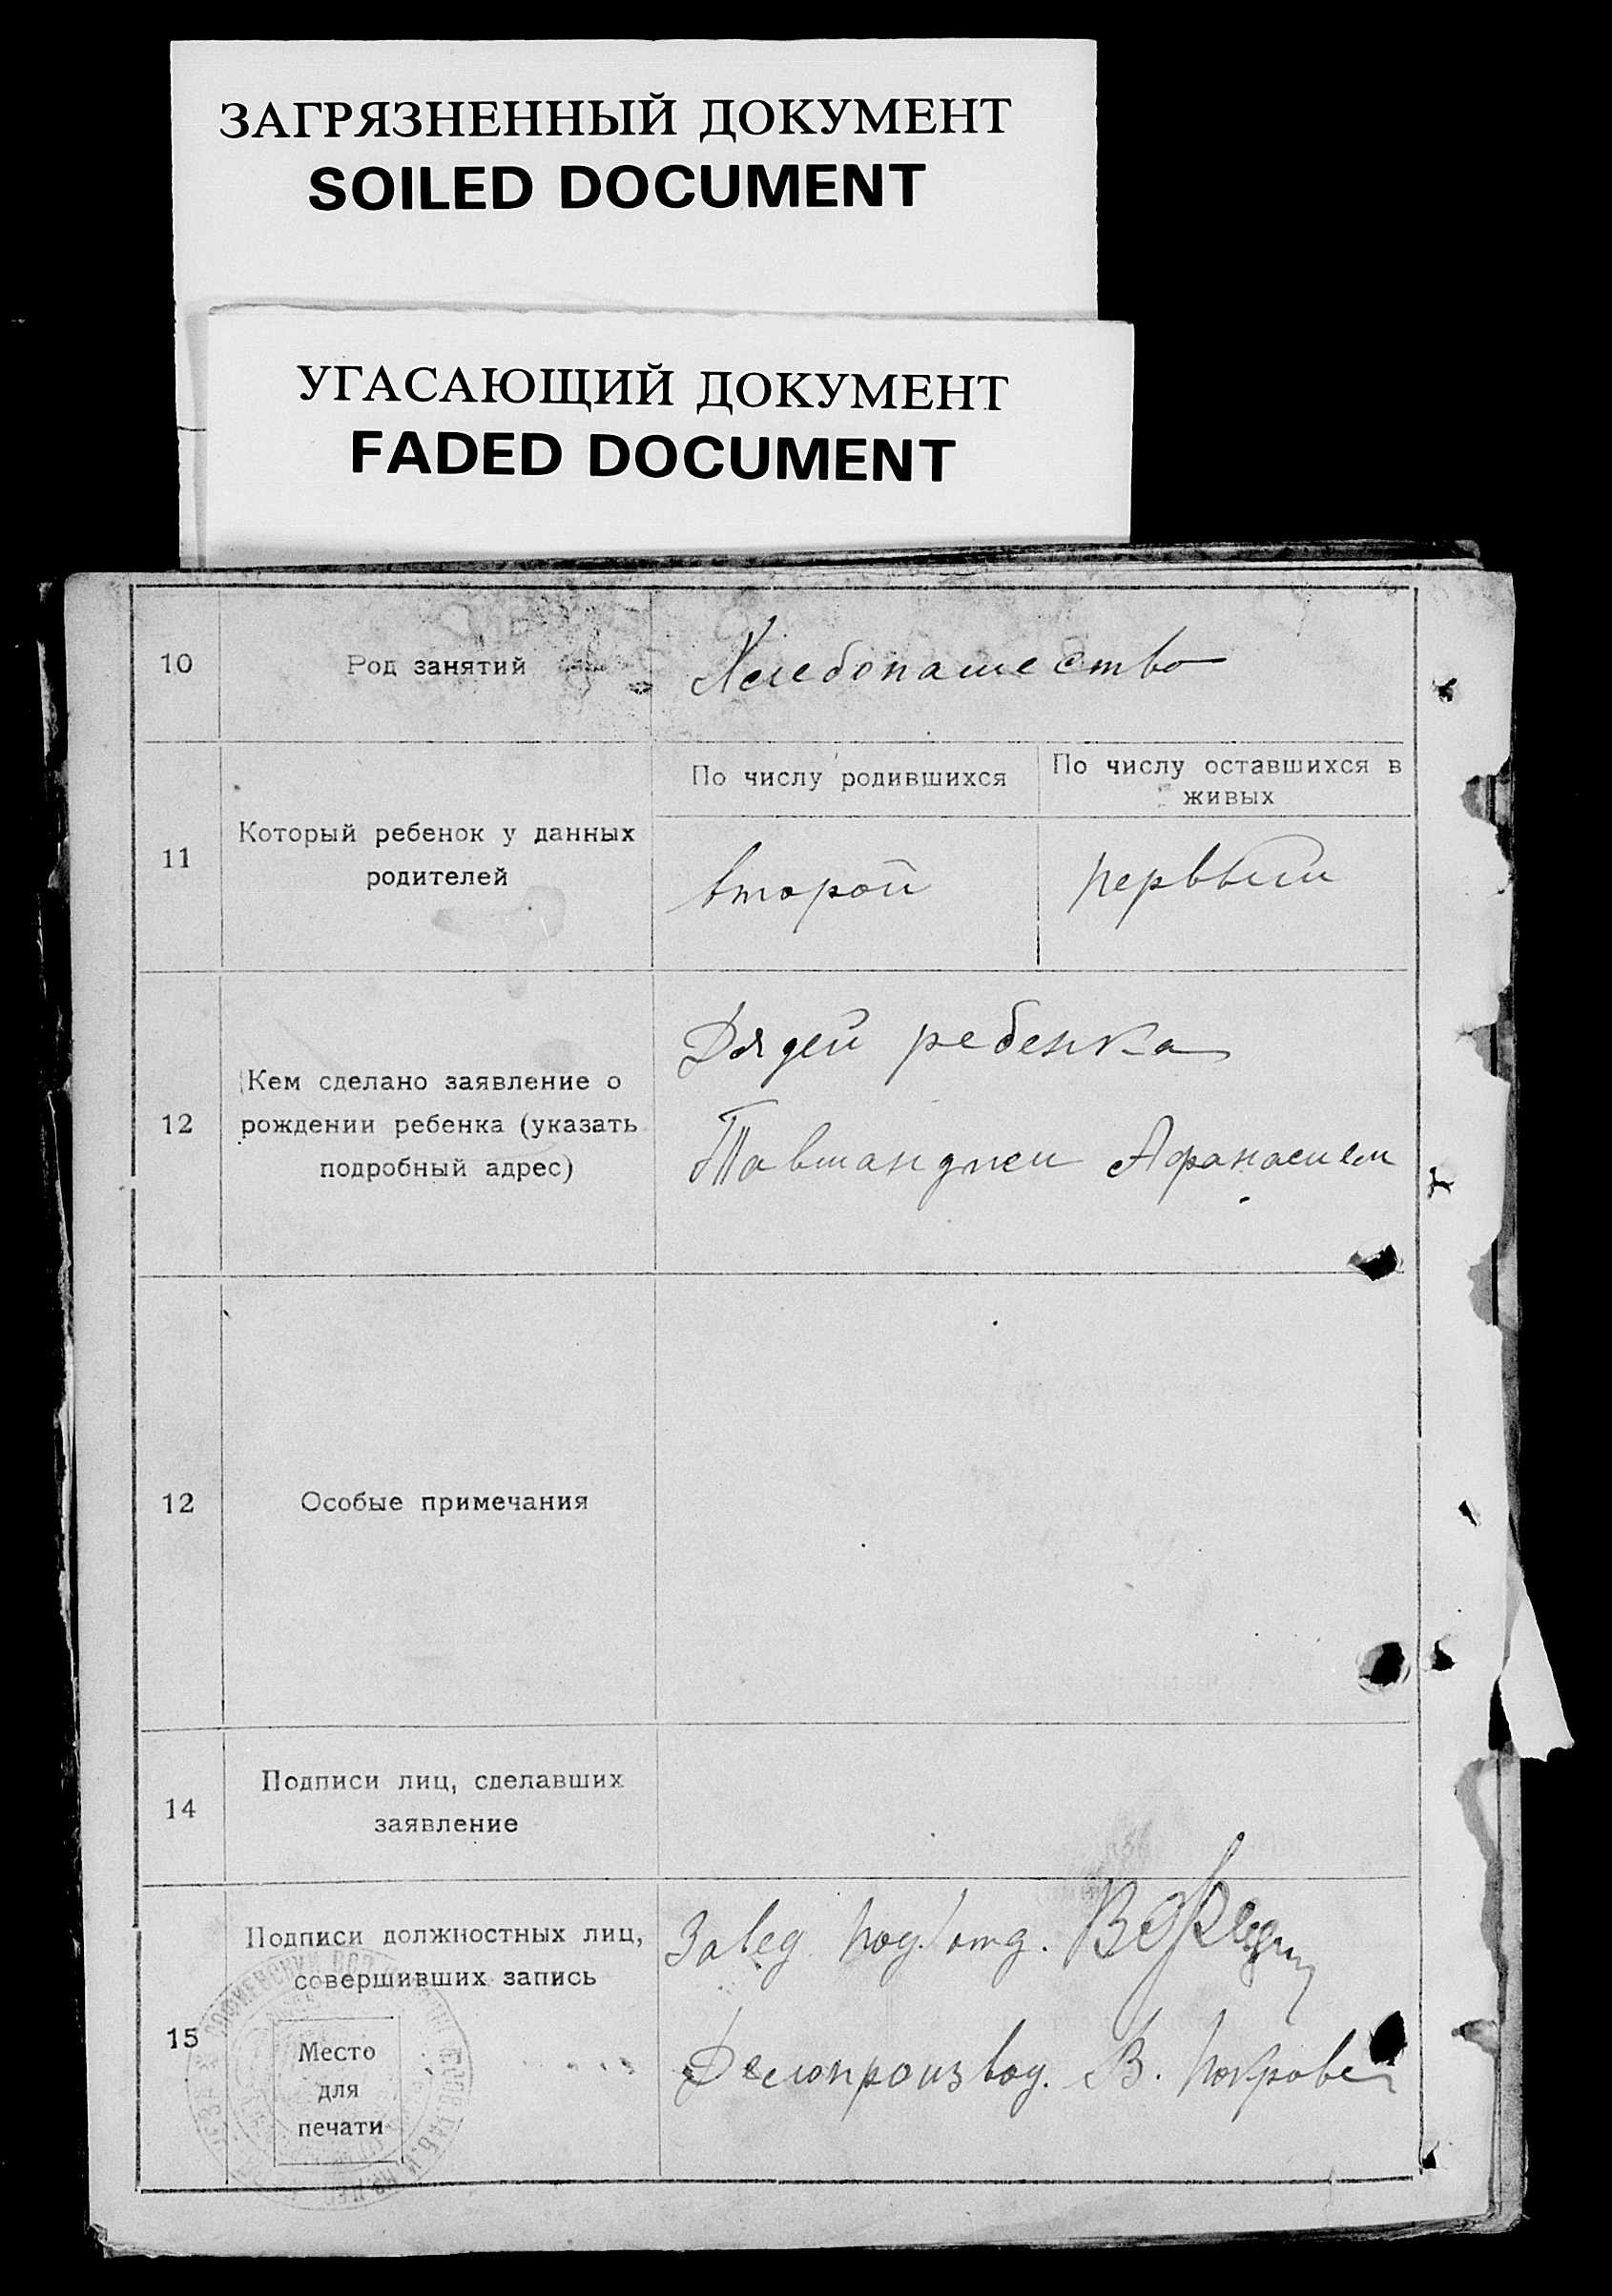 ЗАГРЯЗНЕННЫЙ ДОКУМЕНТ
SOILED DOCUMENT
УГАСАЮЩИЙ ДОКУМЕНТ
FADED DOCUMENT
10
Род занятий
Хлебопашество
11
Который ребенок у данных
родителей
По числу родившихся
По числу оставшихся в
живых
второй
первый
12
Кем сделано заявление о
рождении ребенка (указать
подробный адрес)
Дядей ребенка
Афанасием
12
Особые примечания
14
Подписи лиц, сделавших
заявление
15
Подписи должностных лиц,
совершивших запись
Место
для
печати
Завед. под/отд.
Делопроизвод. В.